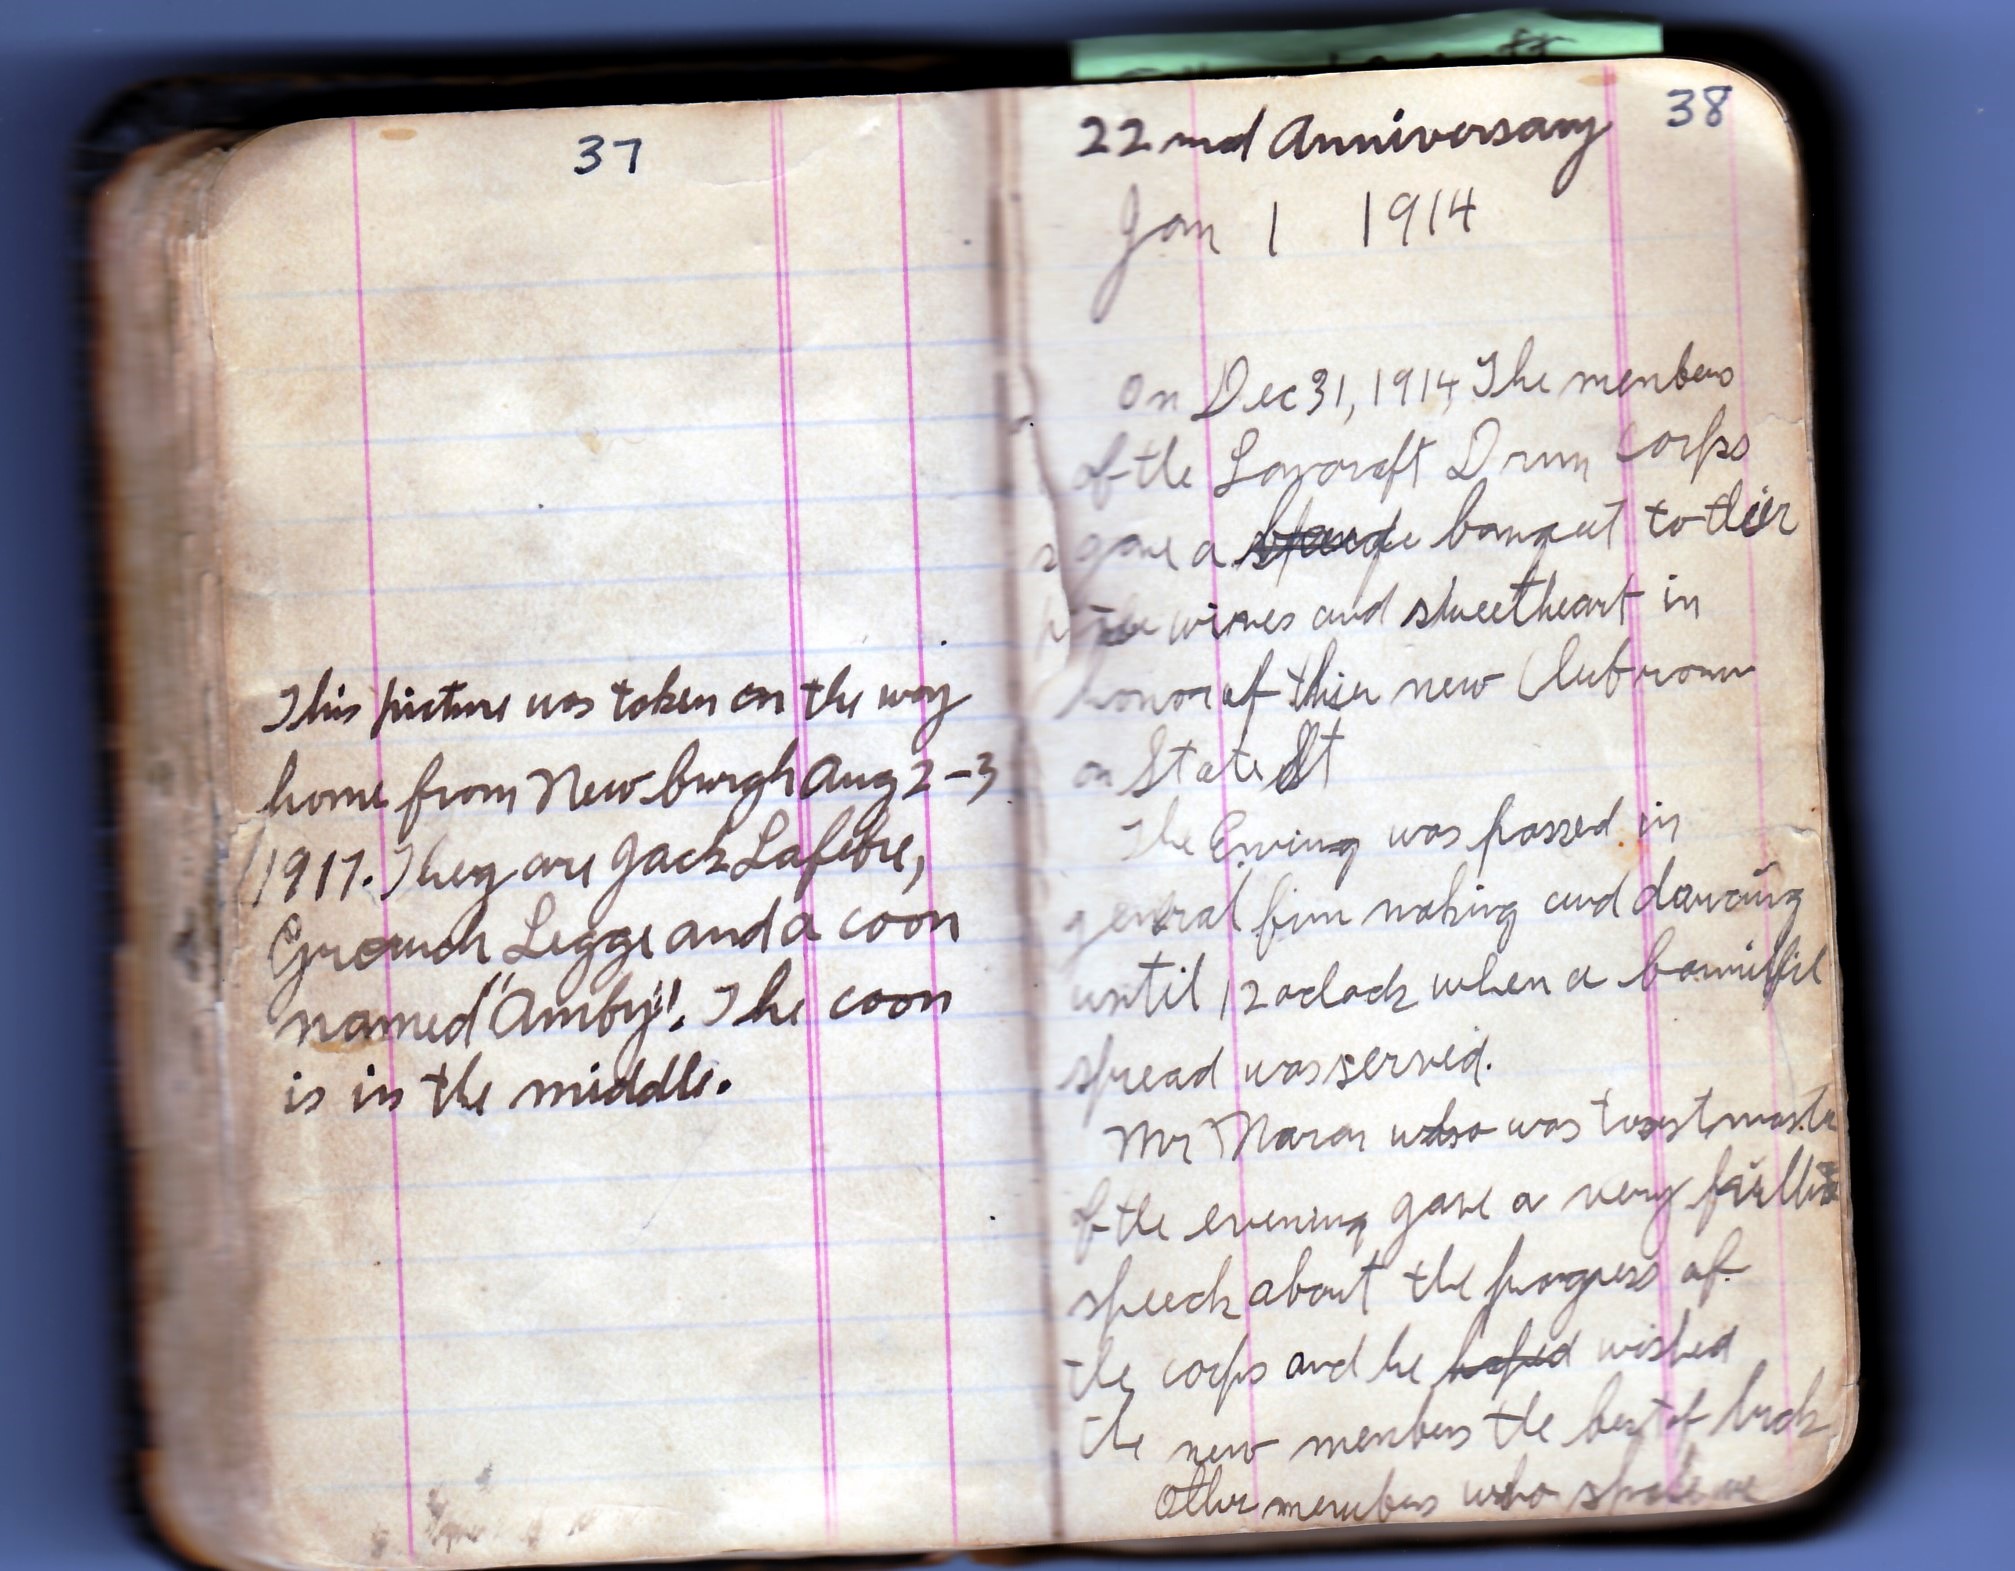 37
This picture was taken on the way
home from Newburgh Aug 2-3
1917. They are Jack Lafebre,
Grouch Legge and a coon
named "Amby". The coon
is in the middle.
38
22nd Anniversary
Jan 1 1914
On Dec 31, 1914 The members
of the Lovcraft Drum Corps
gave a banquet to thier
wives and sweetheart in
honor of thier new Clubroom
on State St
The Evening was passed in
general fun making and dancing
until 12 oclock when a
spread was served.
Mr who was toastmaster
of the evening gave a very
speech about the progress of
the corps and he hoped wished
the new members the best of luck
Other members who spoke